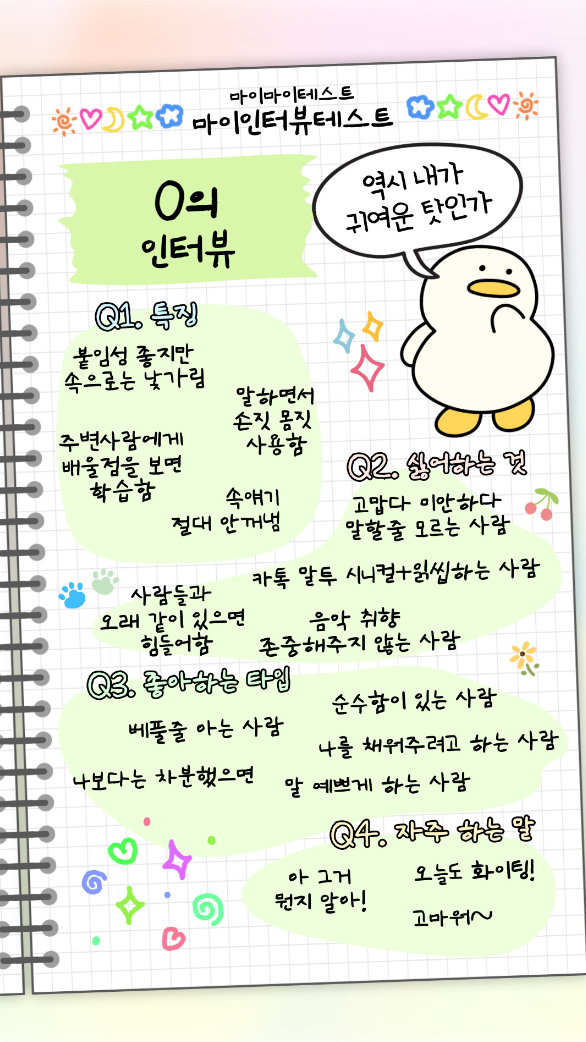 마이마이테스트
마이인터뷰테스트
역시 내가
귀여운 탓인가
O의
인터뷰
Q1. 특징
붙임성 좋지만
속으로는 낯가림
말하면서
손짓 몸짓
사용함
주변사람에게
배울점을 보면
학습함
속얘기
절대 안꺼냄
Q2. 싫어하는 것
고맙다 미안하다
말할줄 모르는 사람
카톡 말투 시니컬+읽씹하는 사람
사람들과
오래 같이 있으면
힘들어함
음악 취향
존중해주지 않는 사람
Q3. 좋아하는 타입
순수함이 있는 사람
베풀줄 아는 사람
나를 채워주려고 하는 사람
나보다는 차분했으면
말 예쁘게 하는 사람
Q4. 자주 하는 말
아 그거
뭔지 알아!
오늘도 화이팅!
고마워~